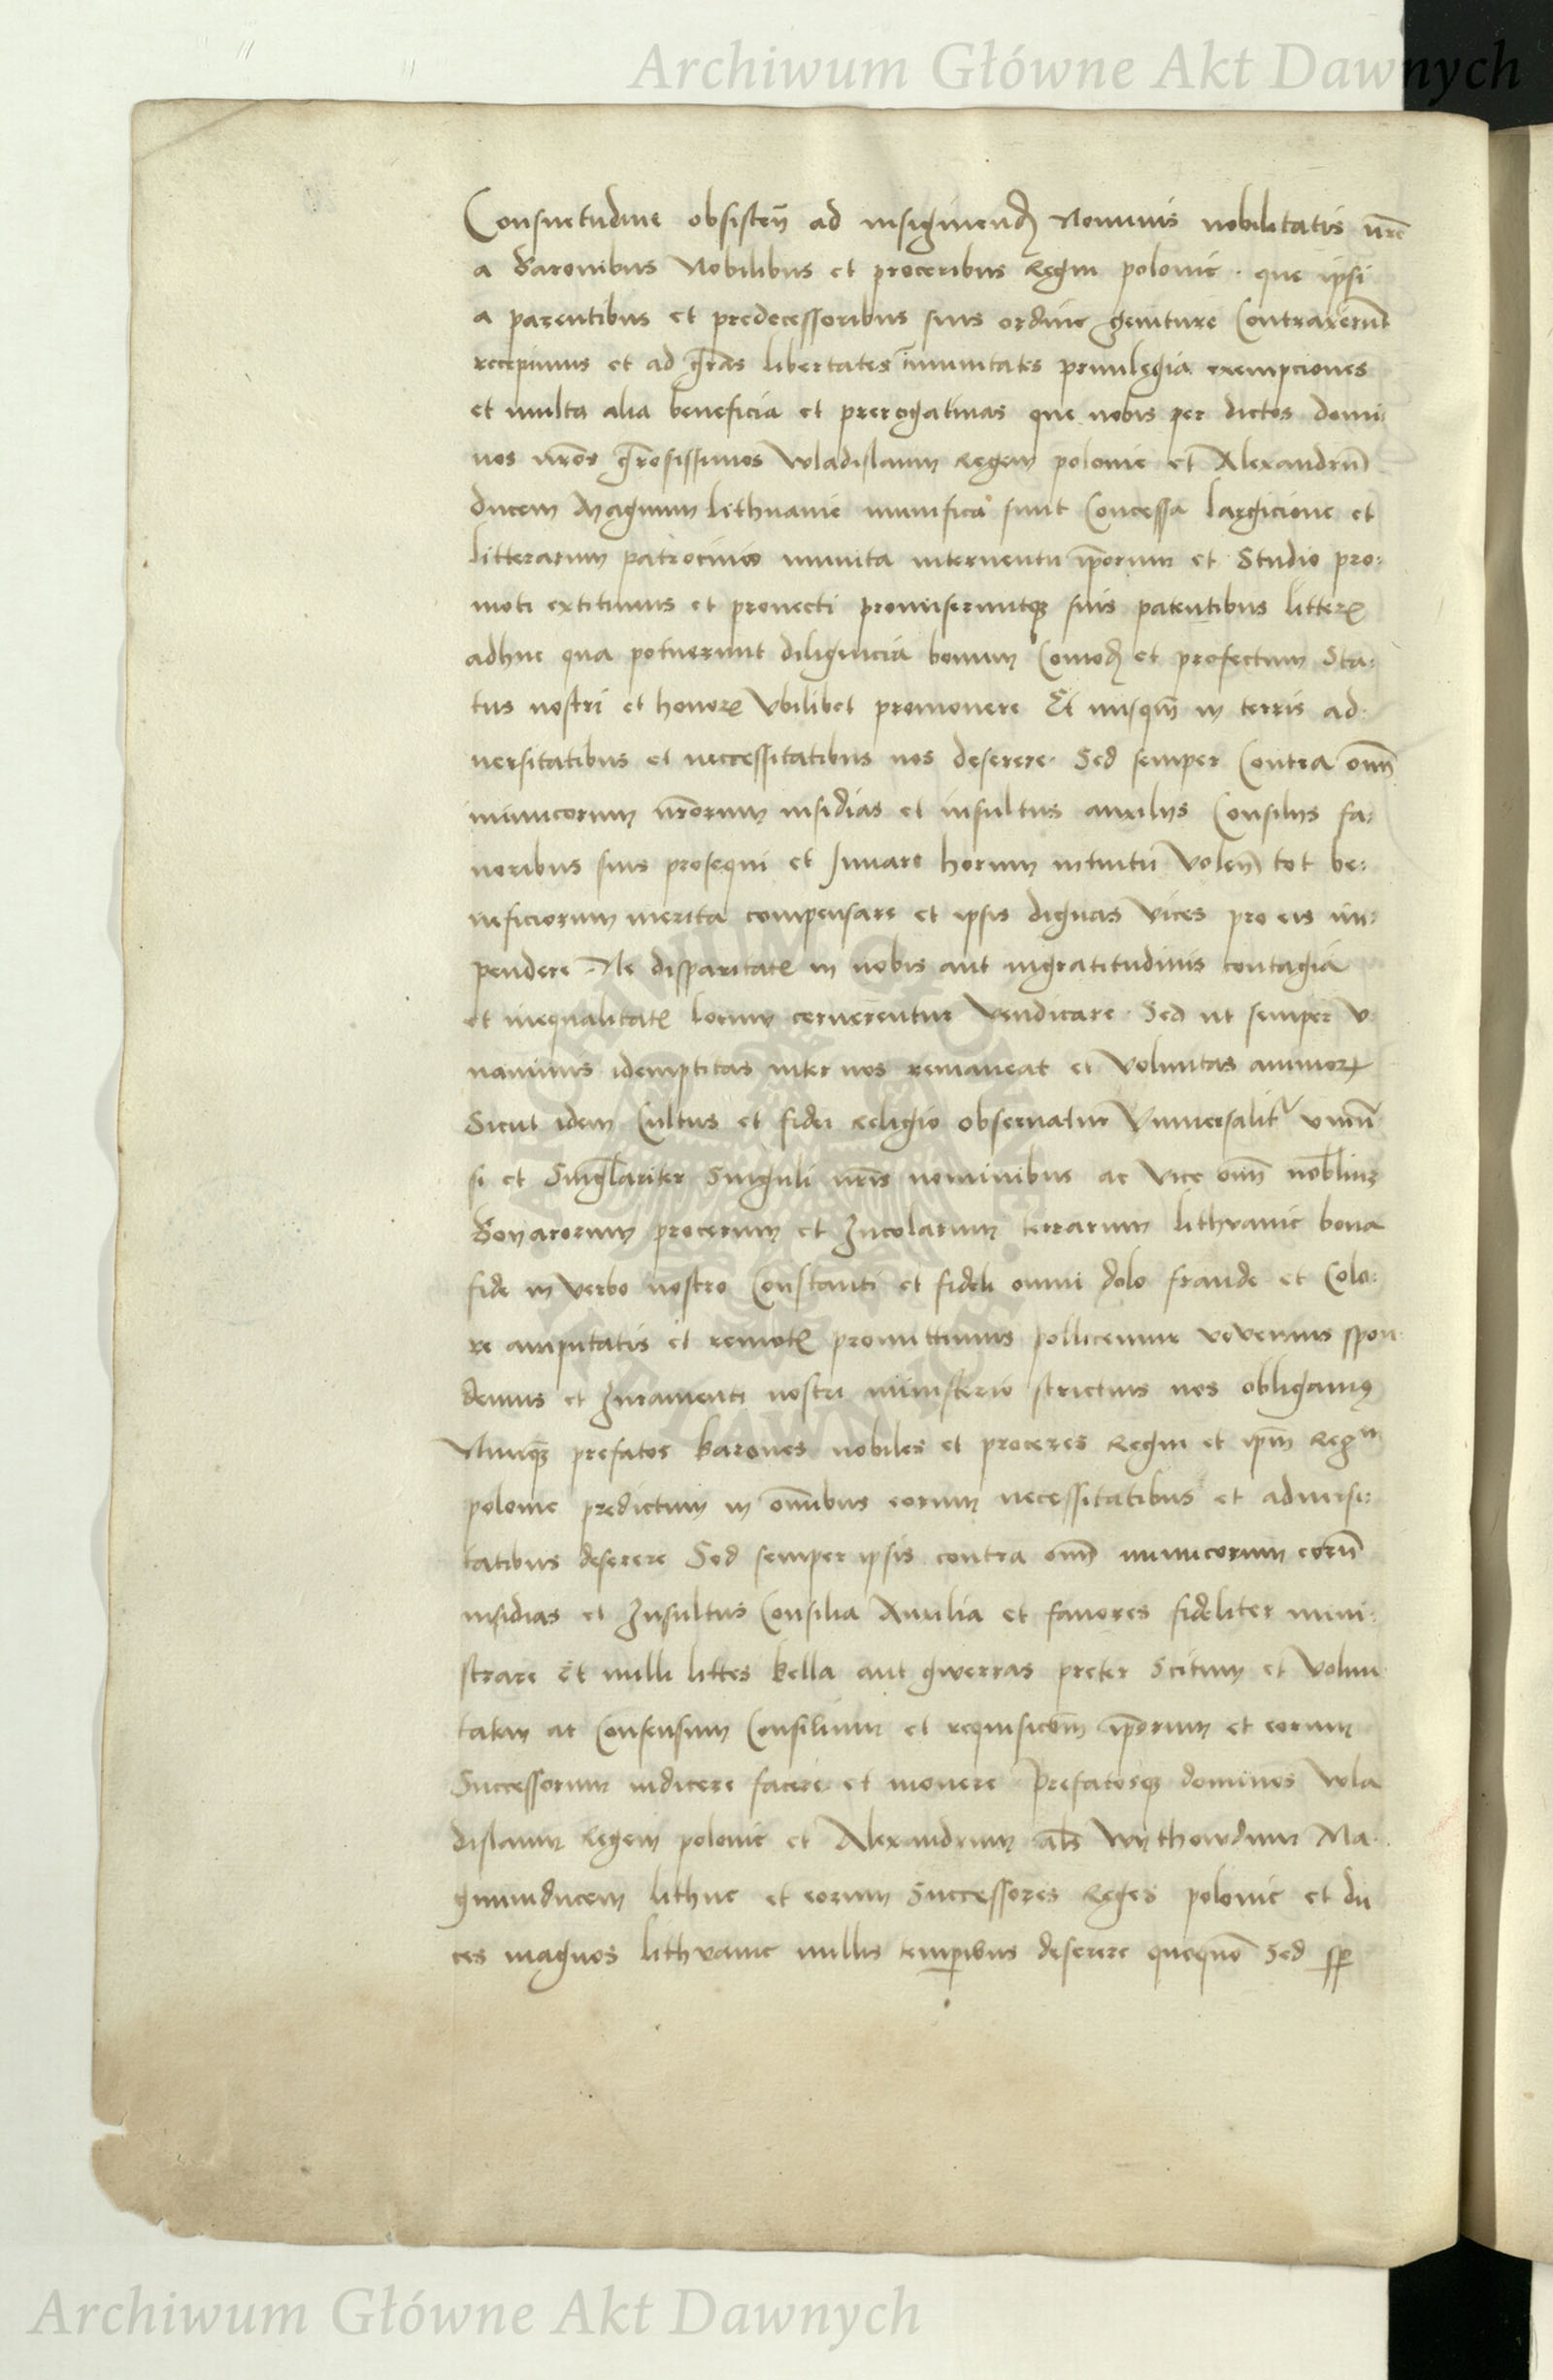 Archiwum Główne Akt Dawnych
Consuetudine obsisteñ ad insigniend Nominis nobilitatis nrē
a Baronibus Nobilibus et proceribus Regni polonie · que ipsi
a parentibus et predecessoribus suis ordine geniture Contraxerūt
recepimus et ad gr̄as libertates īmunitates priuilegia exempciones
et multa alia beneficia et prerogatiuas que nobis per dictos domi:
nos nrōs gr̄osissimos Wladislaum Regem polonie et Alexandrū
ducem Magnum Lithuanie munifica sunt Concessa largicione et
litterarum patrocinio munita interuentu ip̄orum et Studio pro:
moti extitimus et prouecti promiseruntqꝫ suis patentibus litteris
adhuc qua potuerunt diligencia bonum Comod et profectum Sta:
tus nostri et honoris Vbilibet promouere Et nusqꝫ in terris ad:
uersitatibus et neccessitatibus nos deserere· Sed semper Contra om̄
inimicorum nrōrum insidias et insultus auxilijs Consilijs fa:
uoribus suis prosequi et Juuare horum intuitu Voleñ tot be:
neficiorum merita compensare et ipsis dignas Vices pro eis im:
pendere Ne disparitatis in nobis aut ingratitudinis contagia
et inequalitatis locum cernerentur Vendicare· Sed ut semper v:
nanimis idemptitas inter nos remaneat et Voluntas animoꝝ
Sicut idem Cultus et fidei religio obseruatur Vniuersalit̄ vniu̅
si et Singl̄ariter Singuli nrīs nominibus ac Vice om̄ nobliuꝫ
Boyarorum procerum et Incolarum terrarum lithvanie bona
fide in Verbo nostro Constanti et fideli omni dolo fraude et Colo:
re amputatis et remotis promittimus pollicemur vovemus spon:
demus et Iuramenti nostri ministerio strictius nos obligamꝰ
Nunqꝫ prefatos barones nobiles et proceres Regni et ip̄m Regꝫ
polonie predictum in om̄ibus eorum necessitatibus et aduersi:
tatibus deserere Sed semper ipsis contra om̄ inimicorum eorū
insidias et Insultus Consilia Auxilia et fauores fideliter mini:
strare Et nulli littes bella aut gwerras preter Scitum et Volun
tatem ac Consensum Consilium et requisicōm ip̄orum et eorum
Successorum indicere facere et mouere prefatosqꝫ dominos Wla
dislaum Regem polonie et Alexandrum al̄s Wythowdum Ma:
gnumducem lithue et eorum Successores Reges polonie et du
ces magnos lithvanie nullis temp̱ibus deserere quoquō Sed sp̱
Archiwum Główne Akt Dawnych